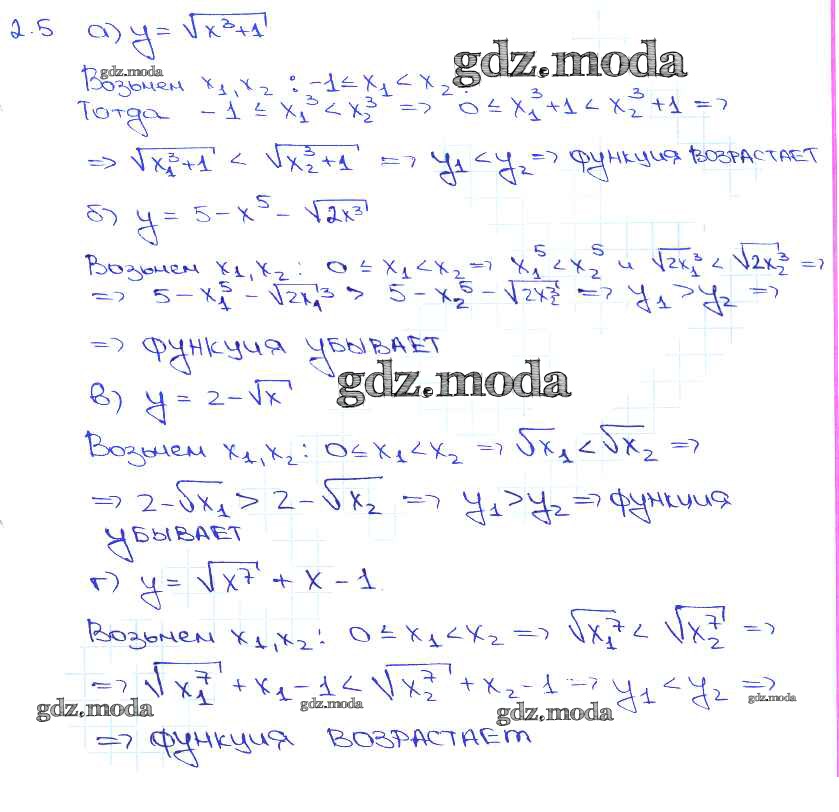 2.5 а) y = √(x³+1)
gdz.moda
gdz.moda
Возьмем x₁, x₂ : -1 ≤ x₁ < x₂.
Тогда -1 ≤ x₁³ < x₂³ => 0 ≤ x₁³+1 < x₂³+1 =>
=> √(x₁³+1) < √(x₂³+1) => y₁ < y₂ => функция ВОЗРАСТАЕТ
б) y = 5 - x⁵ - √(2x³)
Возьмем x₁, x₂ : 0 ≤ x₁ < x₂ => x₁⁵ < x₂⁵ и √(2x₁³) < √(2x₂³) =>
=> 5 - x₁⁵ - √(2x₁³) > 5 - x₂⁵ - √(2x₂³) => y₁ > y₂ =>
=> функция УБЫВАЕТ
gdz.moda
в) y = 2 - √x
Возьмем x₁, x₂ : 0 ≤ x₁ < x₂ => √x₁ < √x₂ =>
=> 2 - √x₁ > 2 - √x₂ => y₁ > y₂ => функция
УБЫВАЕТ
г) y = √(x⁷) + x - 1
Возьмем x₁, x₂ : 0 ≤ x₁ < x₂ => √(x₁⁷) < √(x₂⁷) =>
=> √(x₁⁷) + x₁ - 1 < √(x₂⁷) + x₂ - 1 => y₁ < y₂ =>
gdz.moda
gdz.moda
gdz.moda
gdz.moda
=> функция ВОЗРАСТАЕТ